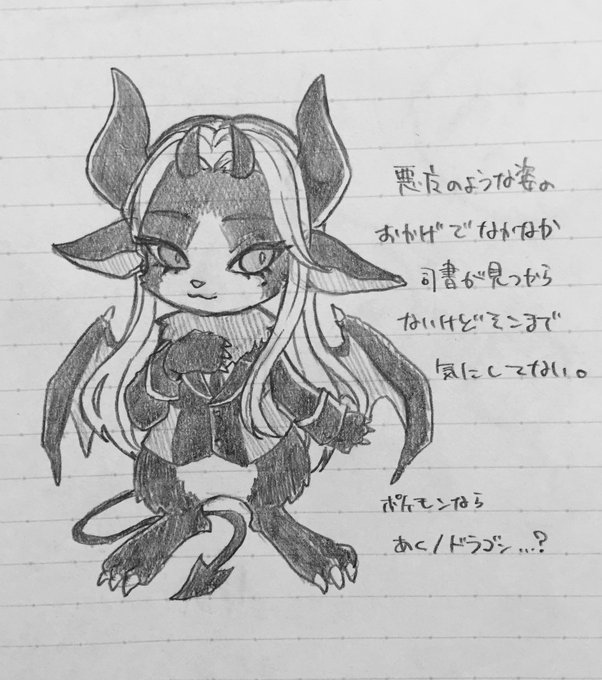 悪魔のような姿の
おかげでなかなか
司書が見つから
ないけどそこまで
気にしてない。
ポケモンなら
あく/ドラゴン...?